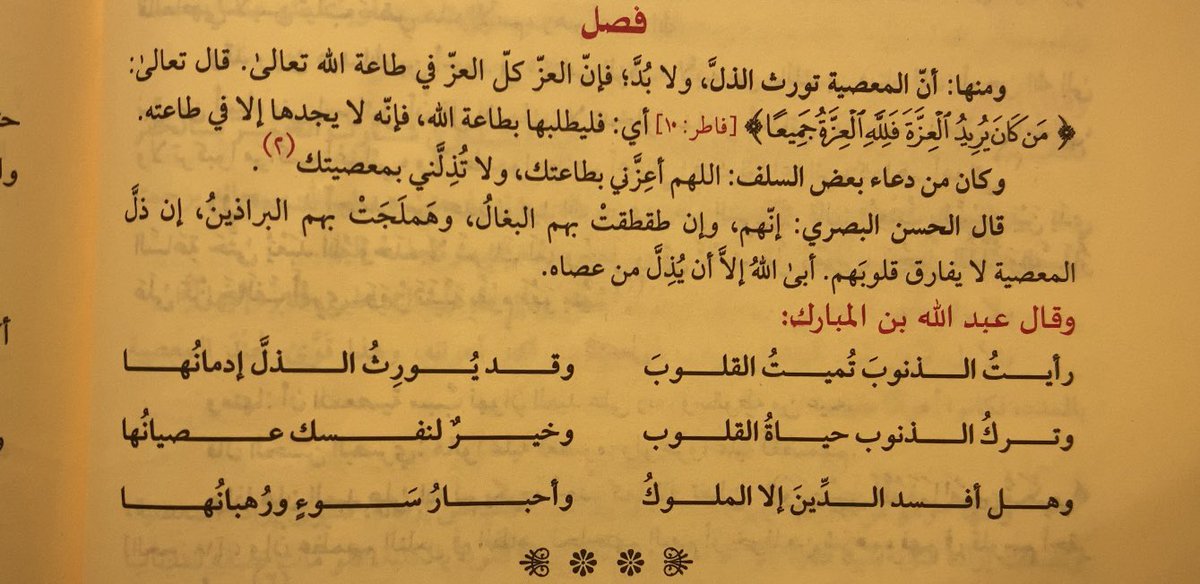 فصل
ومنها: أنّ المعصية تورث الذلَّ، ولا بُدَّ؛ فإنّ العزّ كلّ العزّ في طاعة الله تعالىٰ. قال تعالىٰ:
﴿مَن كَانَ يُرِيدُ ٱلْعِزَّةَ فَلِلَّهِ ٱلْعِزَّةُ جَمِيعًا﴾ [فاطر: ١٠] أي: فليطلبها بطاعة الله، فإنّه لا يجدها إلا في طاعته.
وكان من دعاء بعض السلف: اللهم أعِزَّني بطاعتك، ولا تُذِلَّني بمعصيتك (٢).
قال الحسن البصري: إنّهم، وإن طقطقتْ بهم البغالُ، وهَملَجَتْ بهم البراذينُ، إن ذلَّ
المعصية لا يفارق قلوبَهم. أبىٰ اللهُ إلاَّ أن يُذِلَّ من عصاه.
وقال عبد الله بن المبارك:
رأيــتُ الــذنوبَ تُميــتُ القلــوبَ وقــد يُــورِثُ الــذلَّ إدمانُهــا
وتــركُ الــذنوب حيــاةُ القلــوب وخيــرٌ لنفــسك عــصيانُها
وهــل أفــسد الــدِّينَ إلا الملــوكُ وأحبــارُ سَــوءٍ ورُهبانُهــا